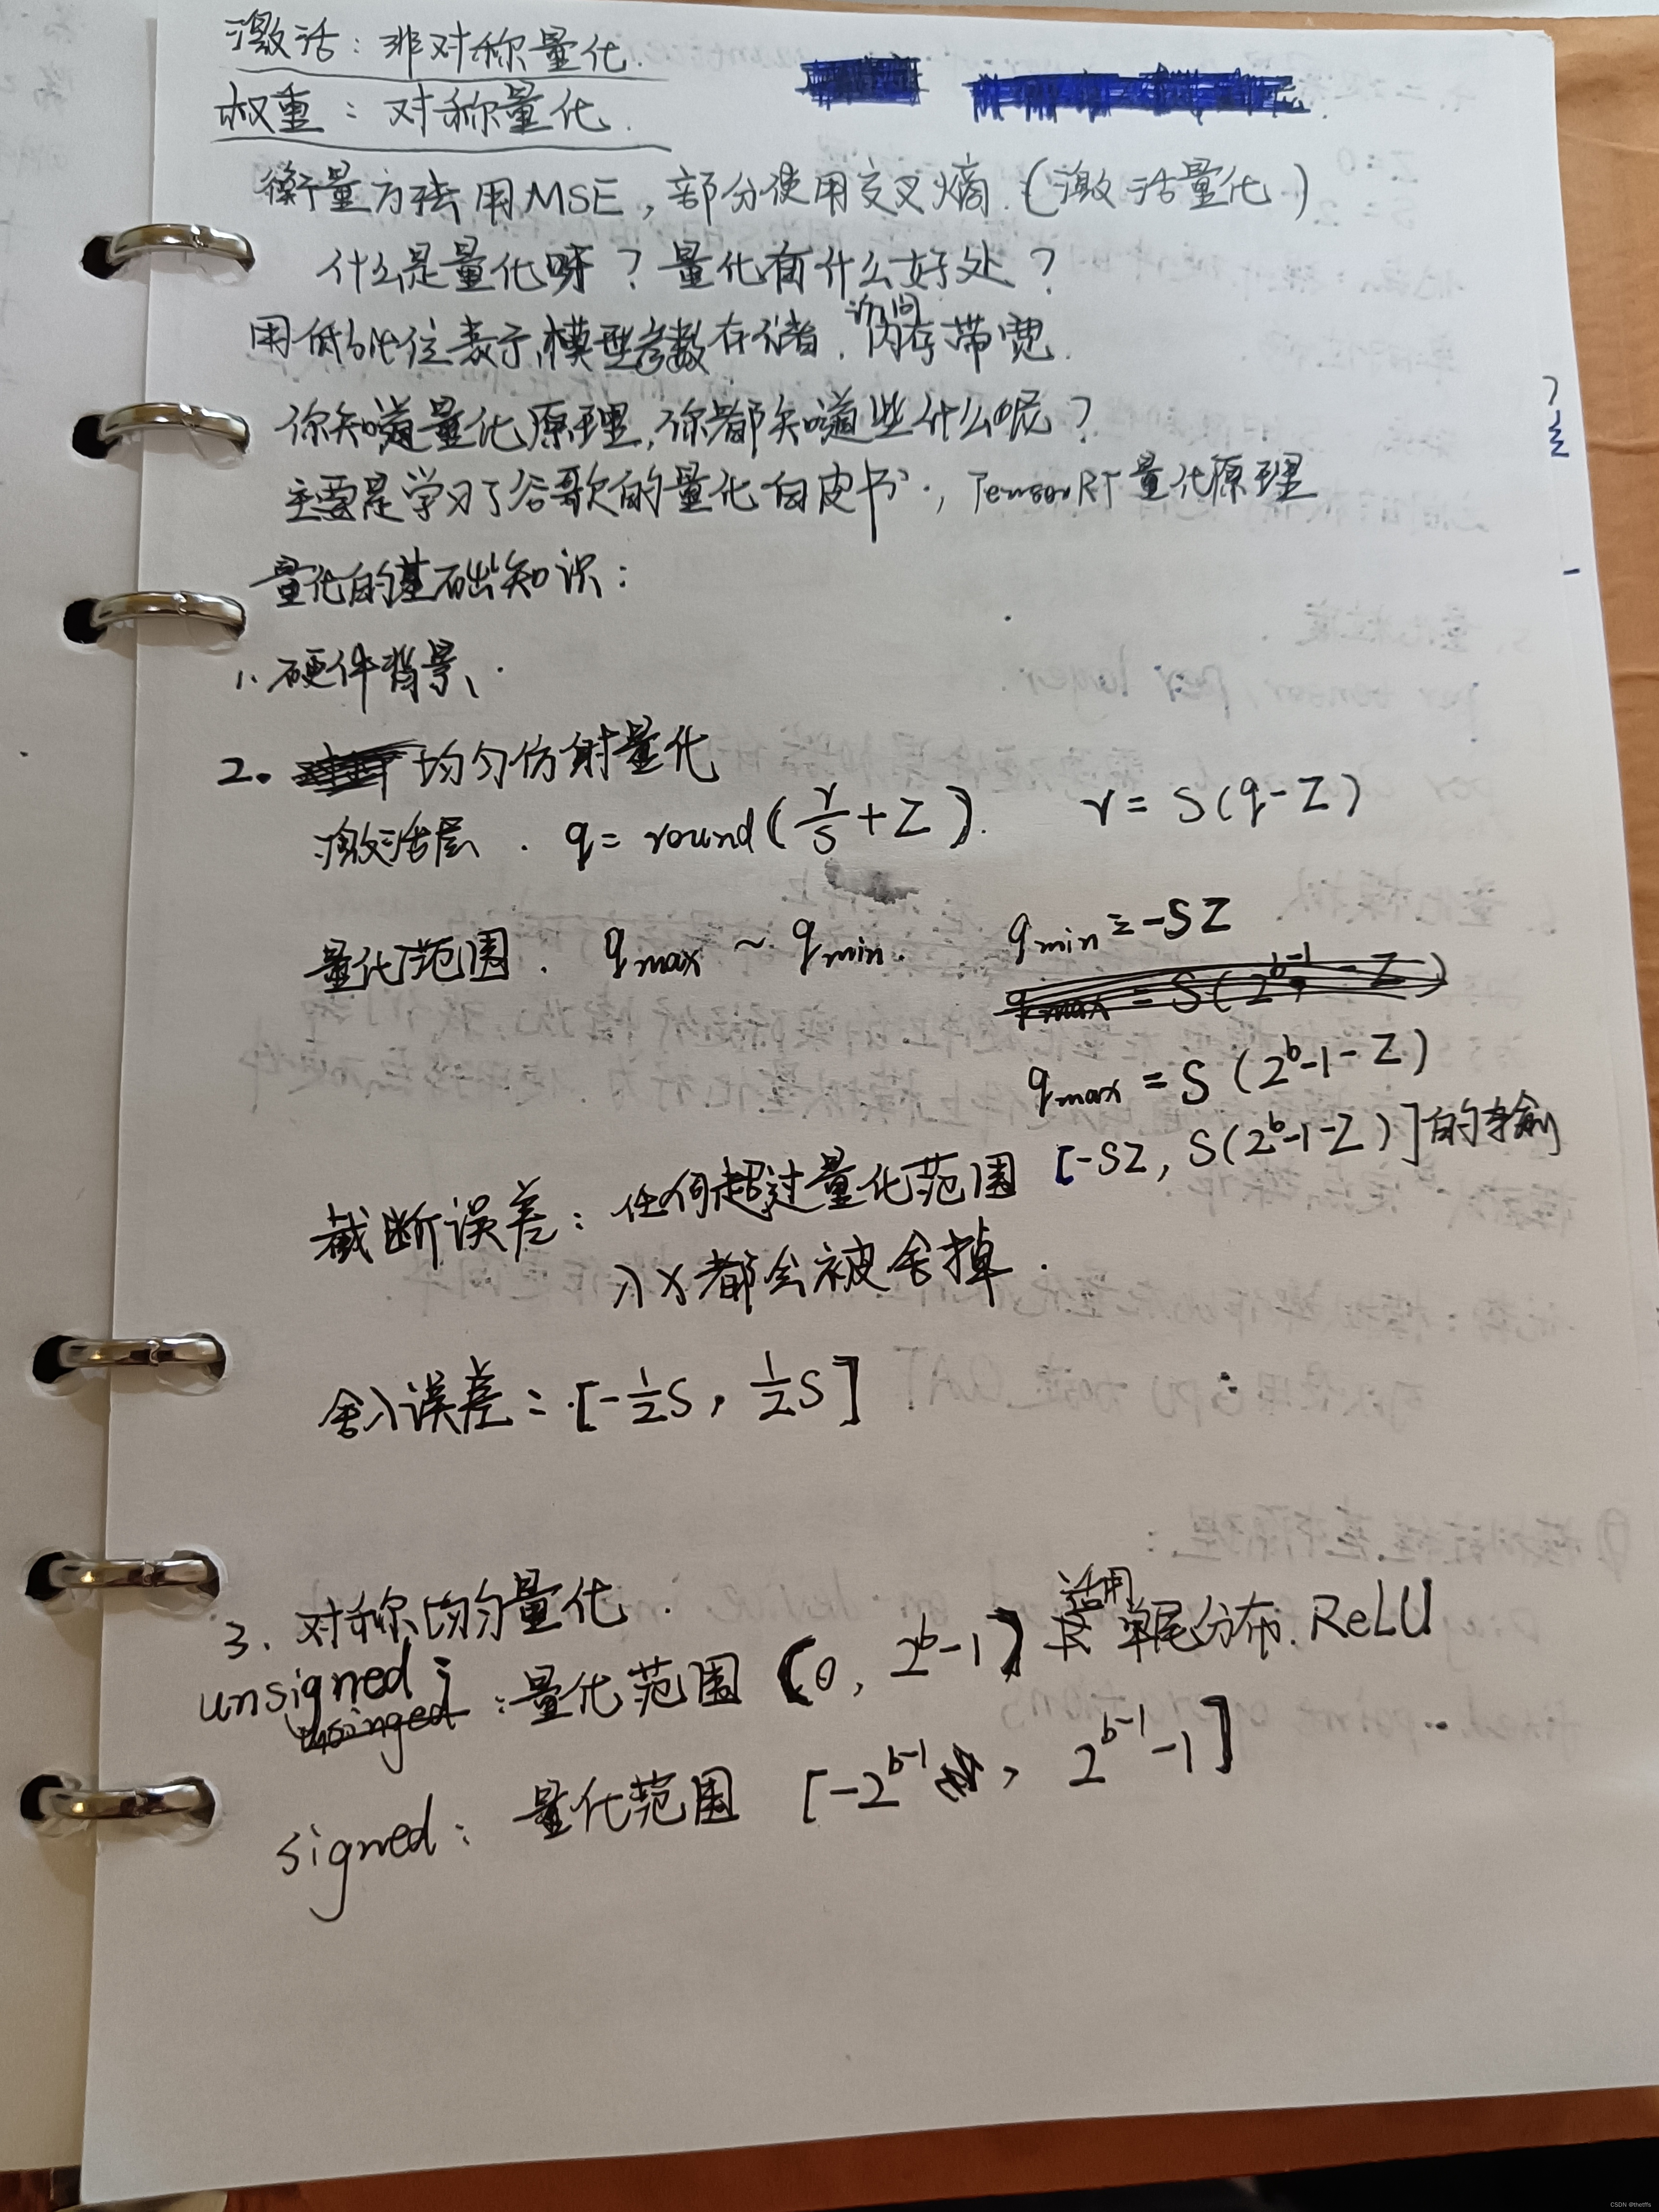 激活：非对称量化.
权重：对称量化.
衡量方法用MSE，部分使用交叉熵.(激活量化)
什么是量化呀？量化有什么好处？
访问
用低比位表示,模型参数存储.内存带宽.
你知道量化原理,你都知道些什么呢？
主要是学习了谷歌的量化白皮书.，TensorRT量化原理
量化的基础知识：
1.硬件背景、.
2. 均匀仿射量化
激活层. q= round(r/S+Z). r= S(q-Z)
量化范围. qmax ~ qmin. qmin = -SZ
qmax = S(2^b-1 - Z)
qmax = S (2^b-1-Z)
截断误差：任何超过量化范围 [-SZ, S(2^b-1-Z)]的输
入X都会被舍掉.
舍入误差=.[-1/2S, 1/2S]
3. 对称均匀量化.
适用
unsigned：量化范围 (0, 2^b-1] 单尾分布.ReLU
unsinged
signed：量化范围 [-2^b-1, 2^b-1-1]
CSDN @thetffs